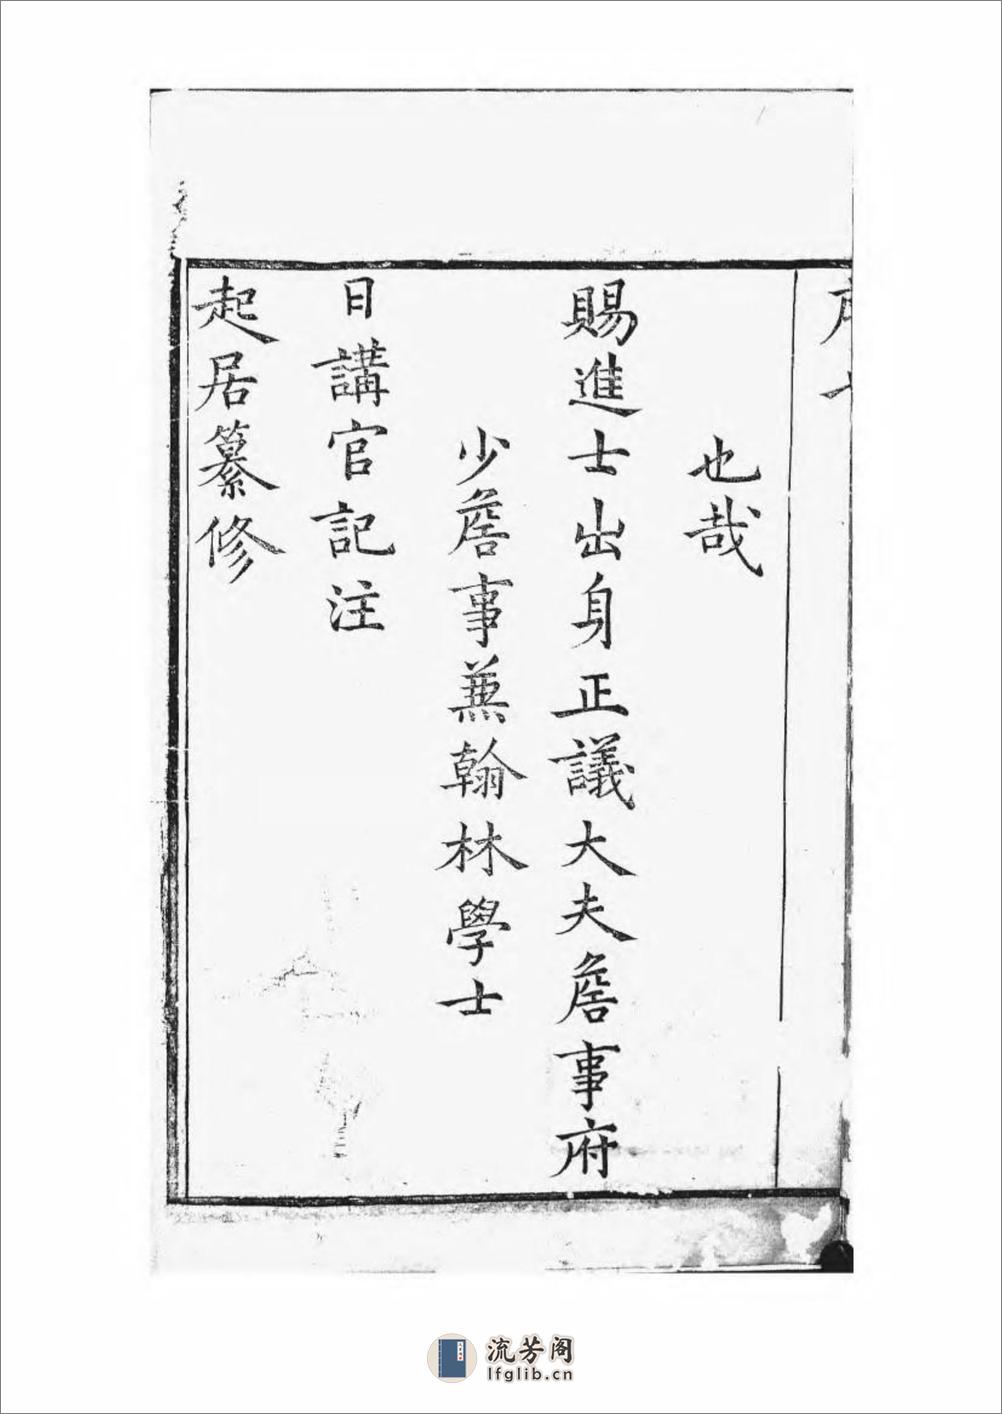 也哉
賜進士出身正議大夫詹事府
少詹事兼翰林學士
日講官記注
起居纂修
流芳阁
lfglib.cn